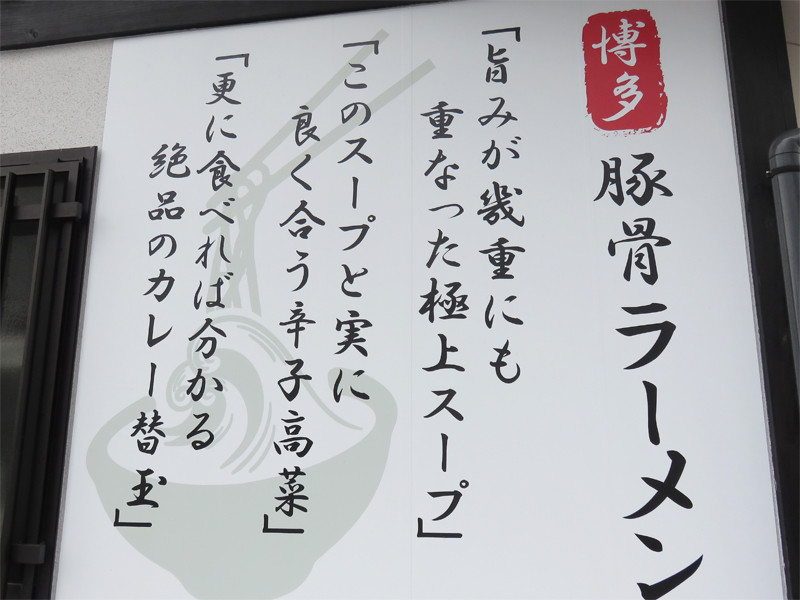 博多
豚骨ラーメン
「旨みが幾重にも
重なった極上スープ」
「このスープと実に
良く合う辛子高菜」
「更に食べれば分かる
絶品のカレー替玉」